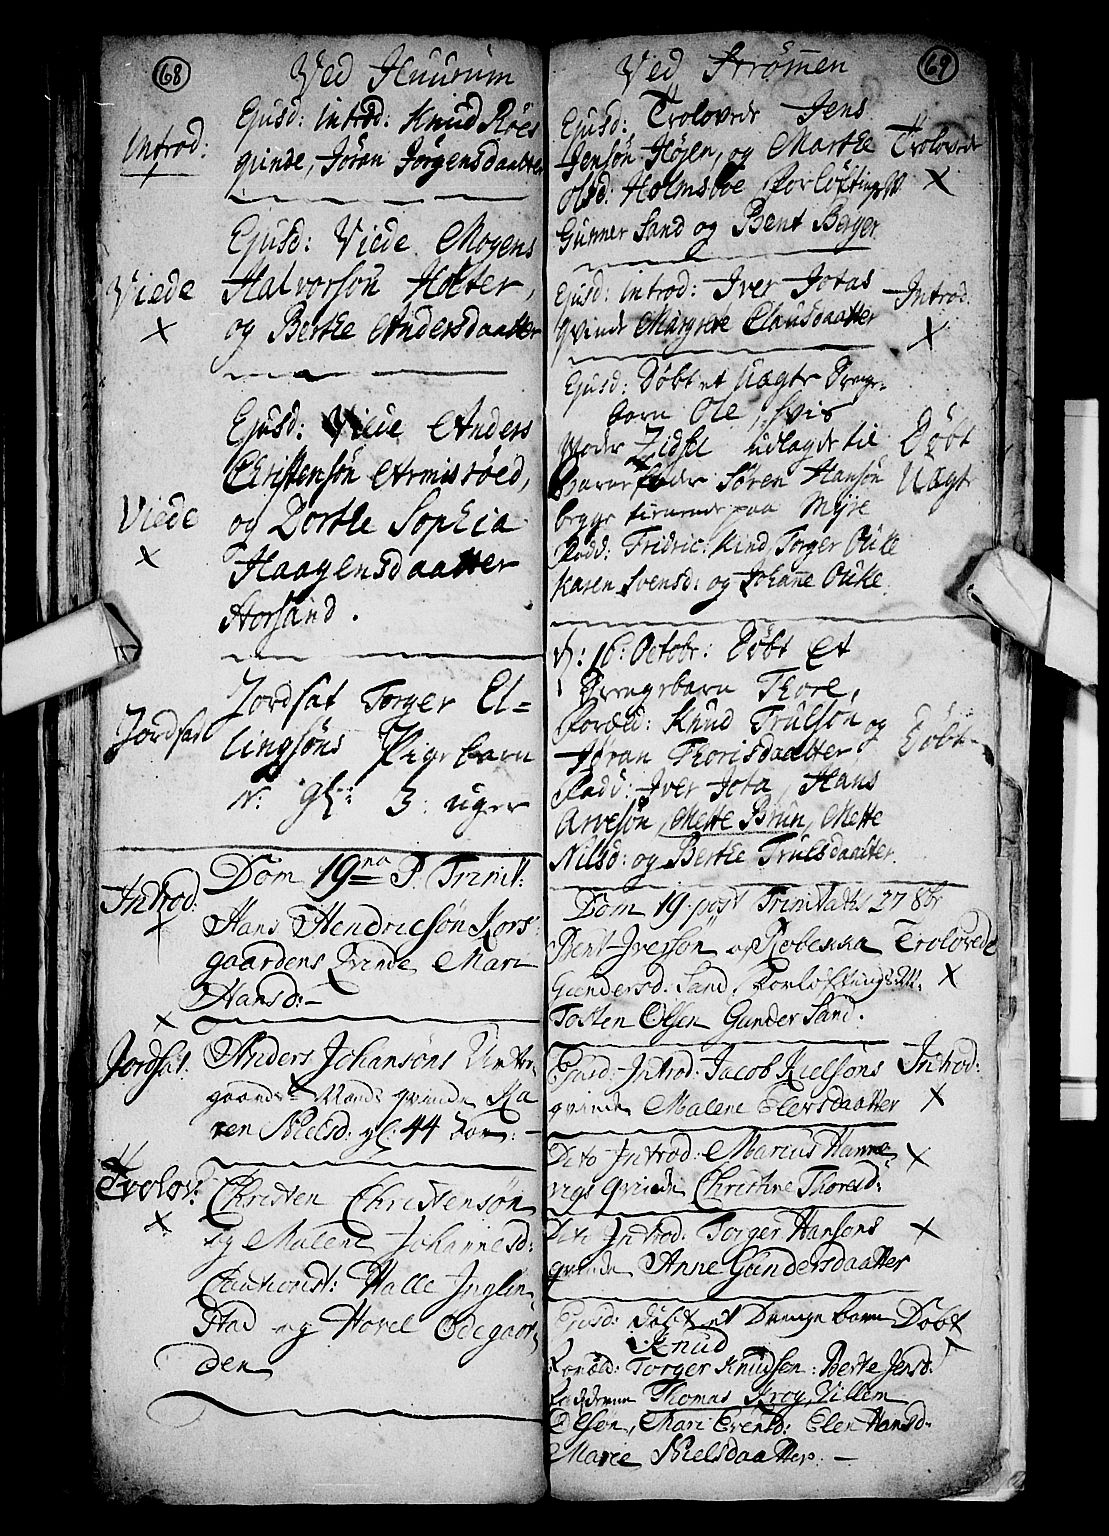 68
Ved Huurum
Introd:
Ejusd: introd: Knud Röes
qvinde, Jöran Jörgensdaatter
Viede
Ejusd: Viede Mogens
Halvorsön Holter,
og Berthe Andersdaatter
Viede
Ejusd: Viede Anders
Christensön Armisröed,
og Dorthe Sophia
Haagensdaatter
Storsand.
Jordsat
Jordsat Torger El=
lingsöns Pigebarn
N: gl: 3 uger
Dom 19na P. Trinit:
Introd:
Hans Hendricsön Kors
gaardens Qvinde Mari
Hansd:
Jordsat.
Anders Johansöns Unter
gaards Mands qvinde Ka
ren Nielsd: gl: 44
Trolov:
Christen Christensön
og Malene Johannesd:
Cautionist: Halle Inglin
stad og Hovel Ödegaar
den
69
Ved Strömen
Ejusd: Trolovede Jens
Jensön Höjen, og Marthe Trolovede
Olsd: Holmsboe forlöftingsM
Gunner Sand og Bent Berger
Ejusd: introd: Iver Jotas Introd.
qvinde Margrete Clausdaatter
Ejusd: Döbt et Uægte Drenge
barn Ole, hvis
Moder Zidsel udlagde til Döbt
Barnefader Sören Hansön Uægte
begge tienende paa Myre
Fadd: Fridric: Kind Torger
Karen Svensd: og Johanne
16: Octobr: Döbt et
Drengebarn Thore,
Foræld: Knud Trulson og
Jöran Thorisdaatter Döbt
Fadd: Iver Jota, Hans
Arvesön, Mette Brun, Mette
Nilsd: og Berthe Trulsdaatter.
Dom 19 post Trinitatis 27 8br
Bent Iverson og Robecka Trolovede
Gundersd: Sand. Forlöftings M.
Tosten Olsen Gunder Sand.
Ejusd: Introd: Jacob Kielsöns Introd:
qvinde Malene Elersdaatter
Dito Introd: Marcus Hanne
vigs qvinde Christine Thoresd:
Dito Introd: Torger Hansöns
qvinde Anne Gundersdaatter
Ejusd: döbt et Drenge barn Döbt
Knud
Foræld: Torger Knudsen: Berte Jensd:
Fadderne Thomas Krog, Villem
Olsön, Mari Evensd: Elen Hansd.
Marie Nielsdaatter.